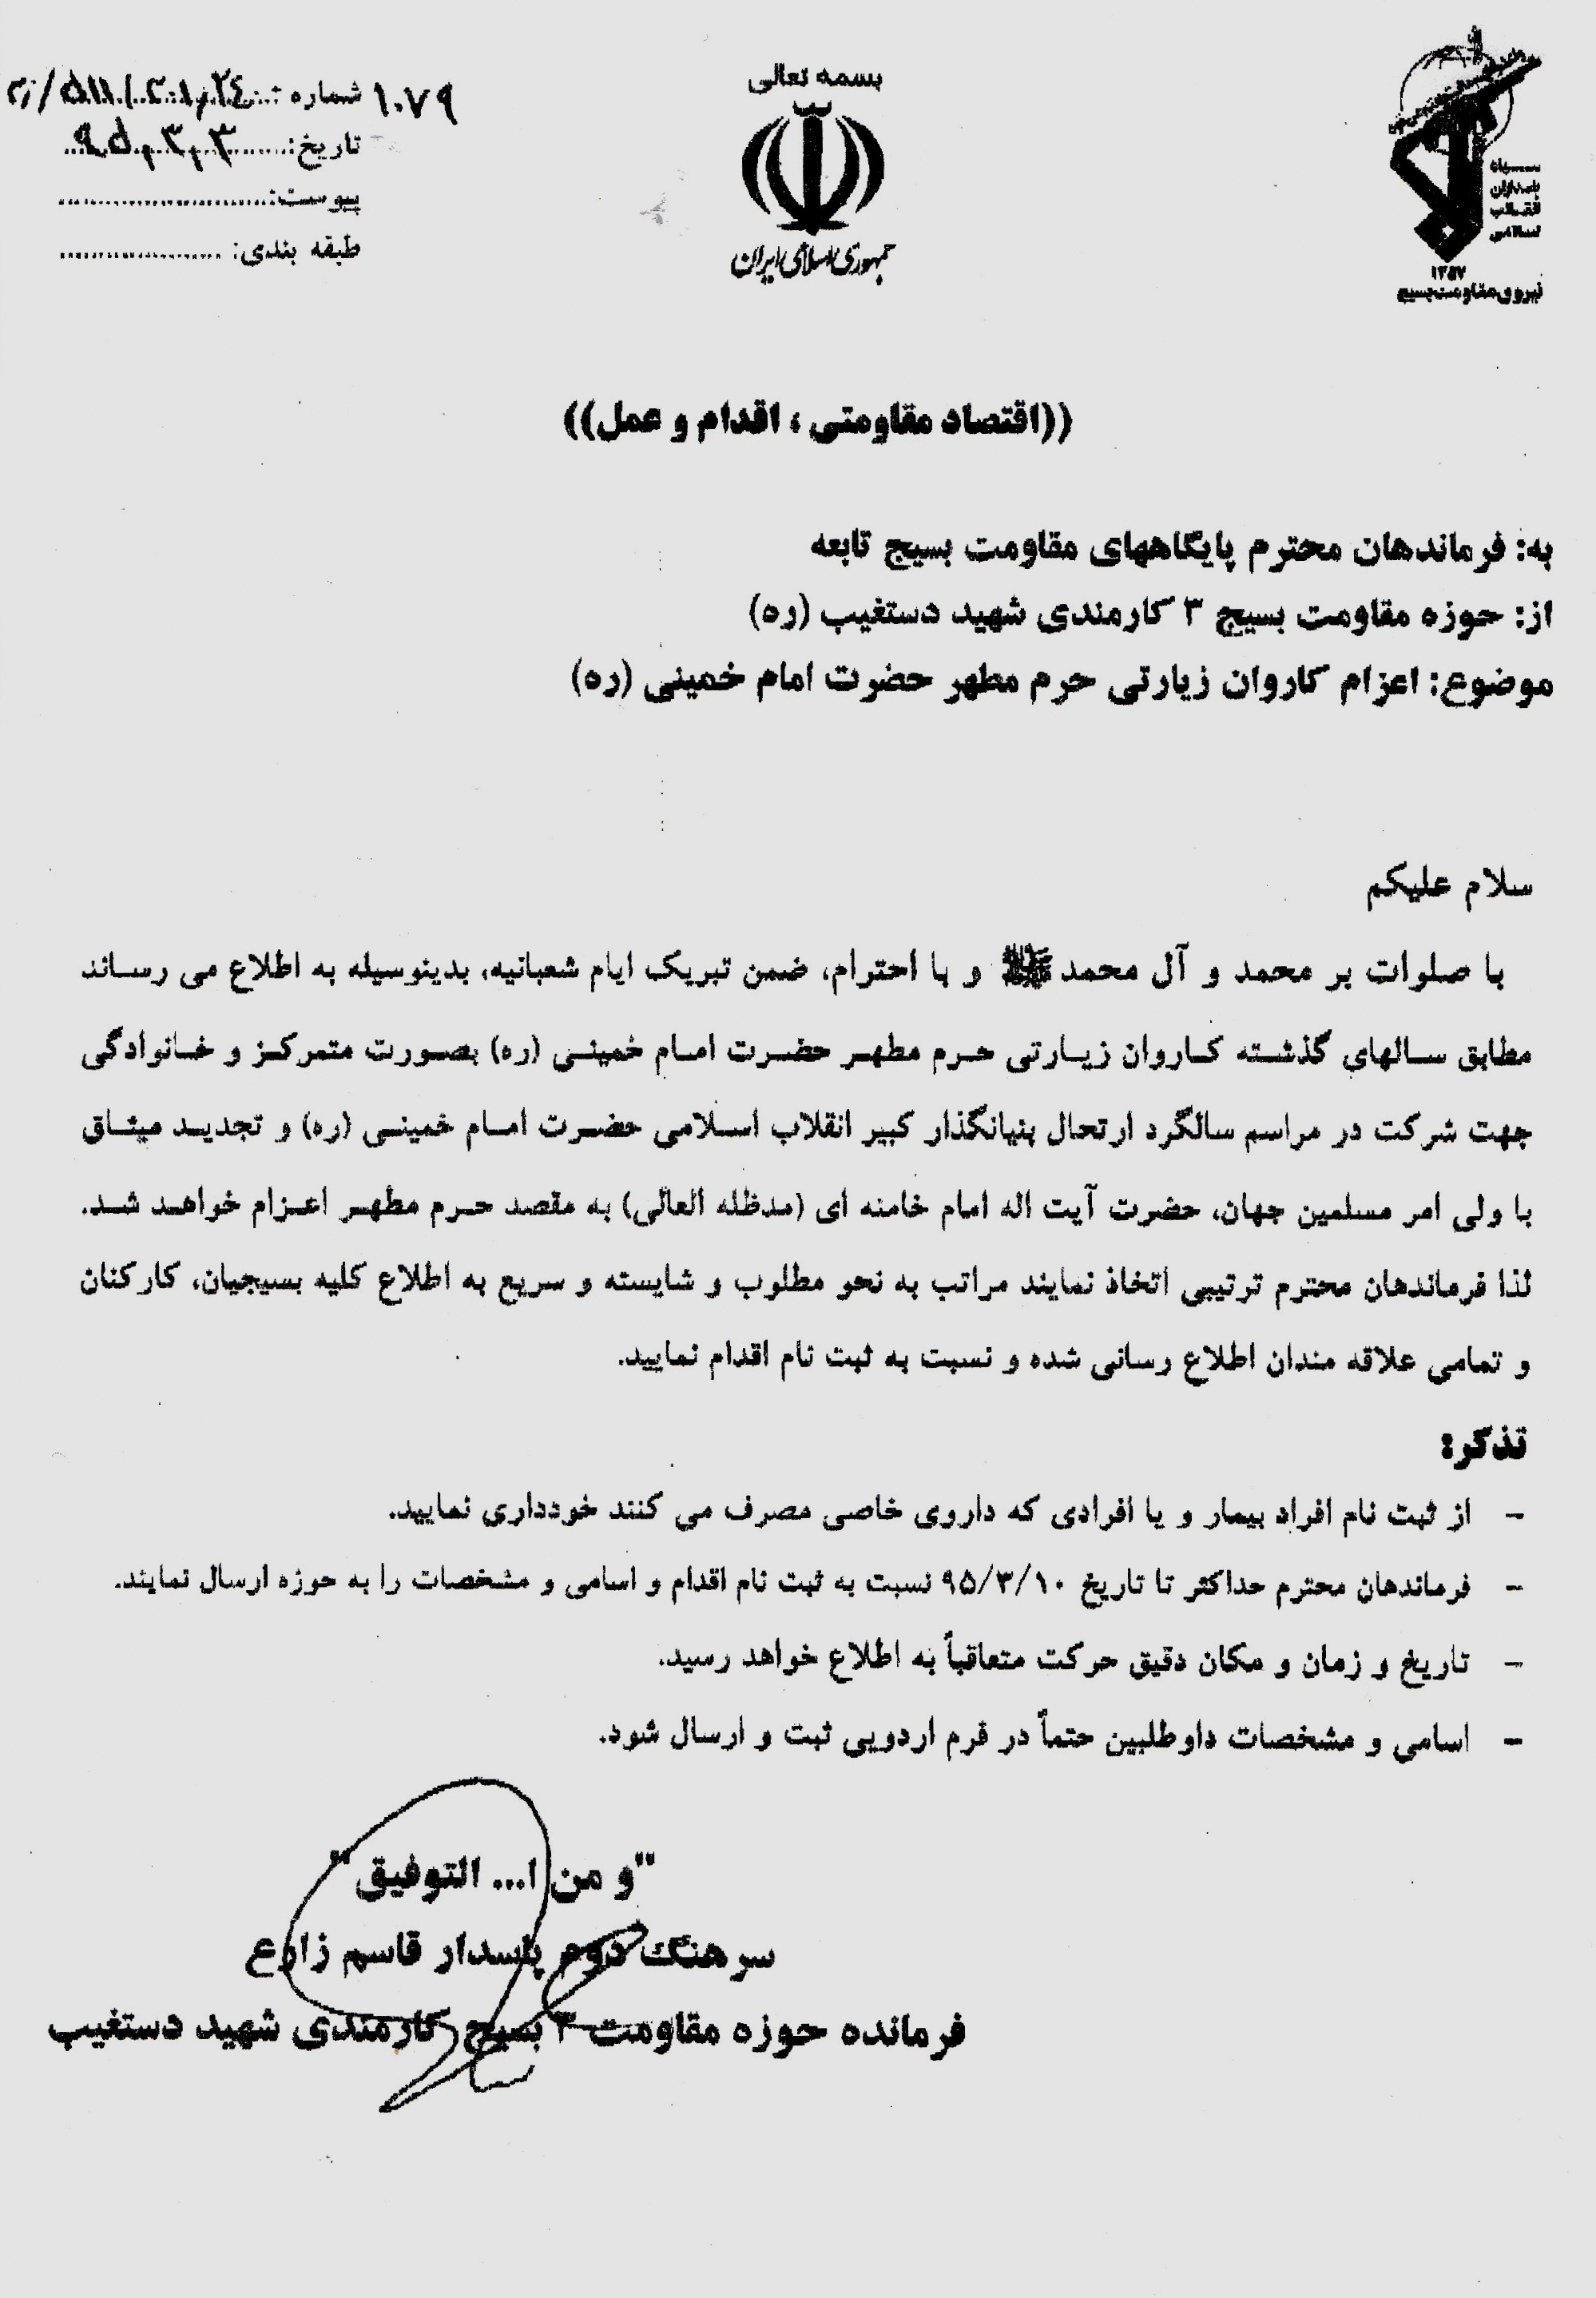 بسمه تعالی
جمهوری اسلامی ایران
سپاه
پاسداران
انقلاب
اسلامی
۱۳۵۷
نیروی مقاومت بسیج
۱۰۷۹
شماره :
تاریخ: ۹۵٫۳٫۳
پیوست:
طبقه بندی:
((اقتصاد مقاومتی ، اقدام و عمل))
به: فرماندهان محترم پایگاههای مقاومت بسیج تابعه
از: حوزه مقاومت بسیج ۳ کارمندی شهید دستغیب (ره)
موضوع: اعزام کاروان زیارتی حرم مطهر حضرت امام خمینی (ره)
سلام علیکم
با صلوات بر محمد و آل محمد ﷺ و با احترام، ضمن تبریک ایام شعبانیه، بدینوسیله به اطلاع می رساند
مطابق سالهای گذشته کاروان زیارتی حرم مطهر حضرت امام خمینی (ره) بصورت متمرکز و خانوادگی
جهت شرکت در مراسم سالگرد ارتحال بنیانگذار کبیر انقلاب اسلامی حضرت امام خمینی (ره) و تجدید میثاق
با ولی امر مسلمین جهان، حضرت آیت اله امام خامنه ای (مدظله العالی) به مقصد حرم مطهر اعزام خواهد شد.
لذا فرماندهان محترم ترتیبی اتخاذ نمایند مراتب به نحو مطلوب و شایسته و سریع به اطلاع کلیه بسیجیان، کارکنان
و تمامی علاقه مندان اطلاع رسانی شده و نسبت به ثبت نام اقدام نمایید.
تذکر:
- از ثبت نام افراد بیمار و یا افرادی که داروی خاصی مصرف می کنند خودداری نمایید.
- فرماندهان محترم حداکثر تا تاریخ ۹۵/۳/۱۰ نسبت به ثبت نام اقدام و اسامی و مشخصات را به حوزه ارسال نمایند.
- تاریخ و زمان و مکان دقیق حرکت متعاقباً به اطلاع خواهد رسید.
- اسامی و مشخصات داوطلبین حتماً در فرم اردویی ثبت و ارسال شود.
"و من ا... التوفیق"
سرهنگ دوم پاسدار قاسم زارع
فرمانده حوزه مقاومت ۳ بسیج کارمندی شهید دستغیب